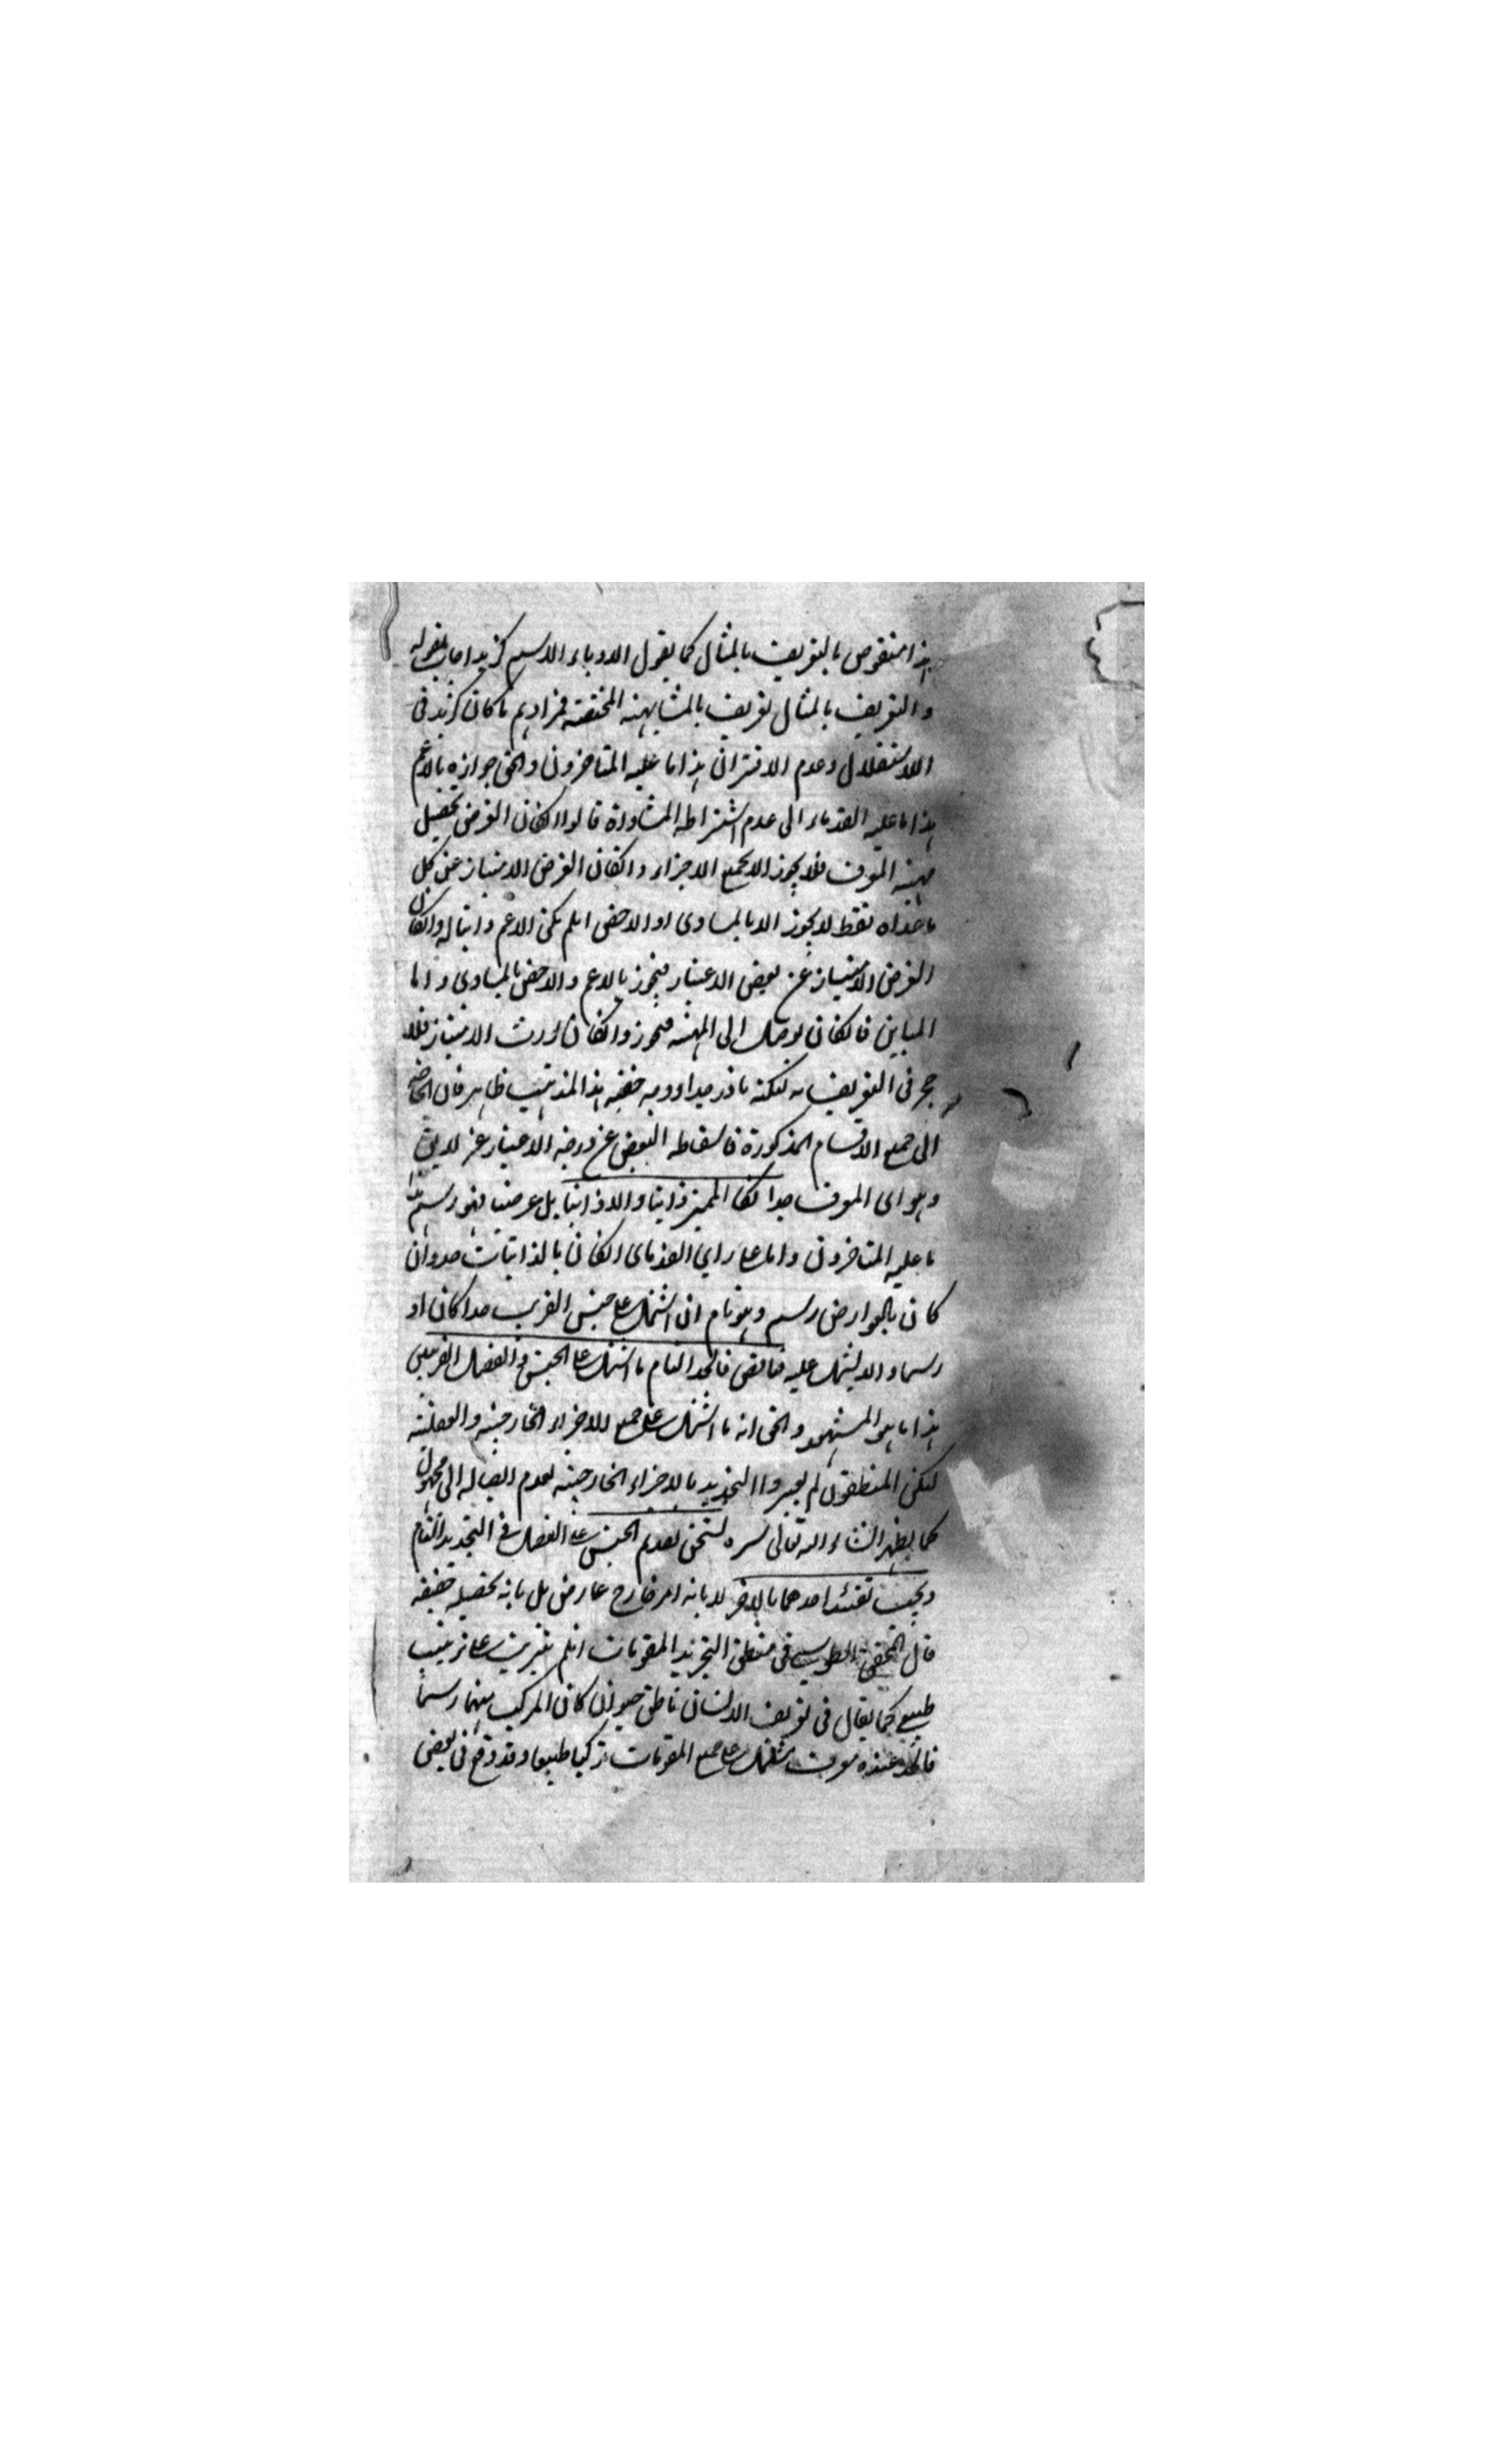 هذا منقوض بالتعريف بالمثال كما يقول الادباء الاسم كزيد اجاب بقوله
والتعريف بالمثال تعريف بالمشابهة المختصة فمرادهم ما كان كزيد في
الاستقلال وعدم الاقتران هذا ما عليه المتاخرون والحق جوازه بالاعم
هذا ما عليه القدماء الى عدم اشتراط المساواة قالوا انكان الغرض تحصيل
مهية المعرف فلا يجوز الا بجميع الاجزاء وانكان الغرض الامتياز عن كل
ما عداه فقط لا يجوز الا بالمساوى او الاخص انلم يكن الاعم ذاتيا له وانكان
الغرض الامتياز عن بعض الاغيار فيجوز بالاعم والاخص بالمساوى واما
المباين فانكان يوصل الى المهية فيجوز وانكان يورث الامتياز فلا
حجر في التعريف به لكنه نادر جدا ووجه حقية هذا المذهب ظاهر فان الحاجة
الى جميع الاقسام المذكورة فاسقاط البعض عن درجة الاعتبار غير لايق
وهو اى المعرف حد انكان المميز ذاتيا والا ذاتيا بل عرضيا فهو رسم هذا
ما عليه المتاخرون واما على راى القدماى انكان بالذاتيات حد وان
كان بالعوارض رسم وهو تام ان اشتمل على جنس القريب حدا كان او
رسما والا يشتمل عليه فناقص فالحد التام ما اشتمل على الجنس والفصل القريبين
هذا ما هو المشهور والحق انه ما اشتمل على جميع الاجزاء الخارجية والعقلية
لكن المنطقيون لم يعتبروا التحديد بالاجزاء الخارجية لعدم ايصاله الى مجهول
كما يظهر انشاء الله تعالى سره يستحسن تقديم الجنس على الفصل في التحديد التام
ويجب تقييد احدهما بالاخر لا بانه امر خارج عارض بل بانه تحصيله حقيقة
قال المحقق الطوسي في منطق التجريد المقومات انلم يترتب على ترتيب
طبيعي كما يقال في تعريف الانسان ناطق حيوان كان المركب منهما رسما
فالحد عنده معرف مشتمل على جميع المقومات تركيبا طبيعيا وقد وقع في بعض